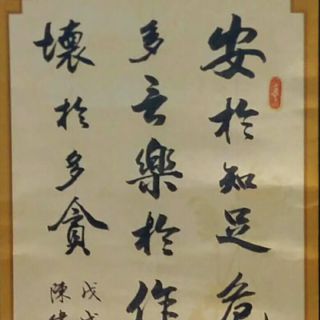 安於知足危
多言樂於作
壞於多貪
戊戌
陳